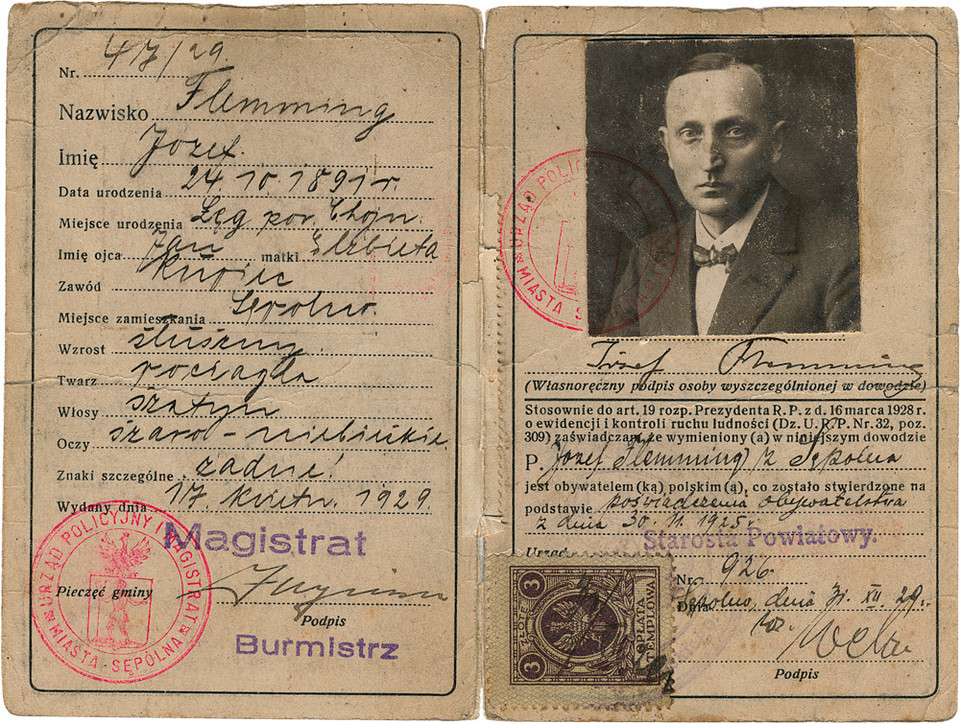 Nr. 47/29.
Nazwisko Flemming
Imię Józef.
Data urodzenia 24. 10. 1891 r.
Miejsce urodzenia Łęg pow. Chojn.
Imię ojca Jan matki Elżbieta
Zawód Kupiec
Miejsce zamieszkania Sępolno.
Wzrost słuszny
Twarz pociągła
Włosy szatyn
Oczy szaro-niebieskie
Znaki szczególne żadne!
Wydany dnia 17. kwietn. 1929.
Magistrat
Pieczęć gminy
Podpis
Burmistrz
URZĄD POLICYJNY I MAGISTRAT
MIASTA SĘPÓLNA
URZĄD POLIC
MIASTA S
Józef Flemming
(Własnoręczny podpis osoby wyszczególnionej w dowodzie)
Stosownie do art. 19 rozp. Prezydenta R. P. z d. 16 marca 1928 r.
o ewidencji i kontroli ruchu ludności (Dz. U. R. P. Nr. 32, poz.
309) zaświadczam, że wymieniony (a) w niniejszym dowodzie
P. Józef Flemming z Sępolna
jest obywatelem (ką) polskim (ą), co zostało stwierdzone na
podstawie poświadczenia obywatelstwa
z dnia 30. 11. 1925 r.
Urząd
Starosta Powiatowy.
Nr. 926
Dnia Sępolno, dnia 31. XII. 29.
Podpis
3 ZŁOTE 3
OPŁATA STEMPLOWA